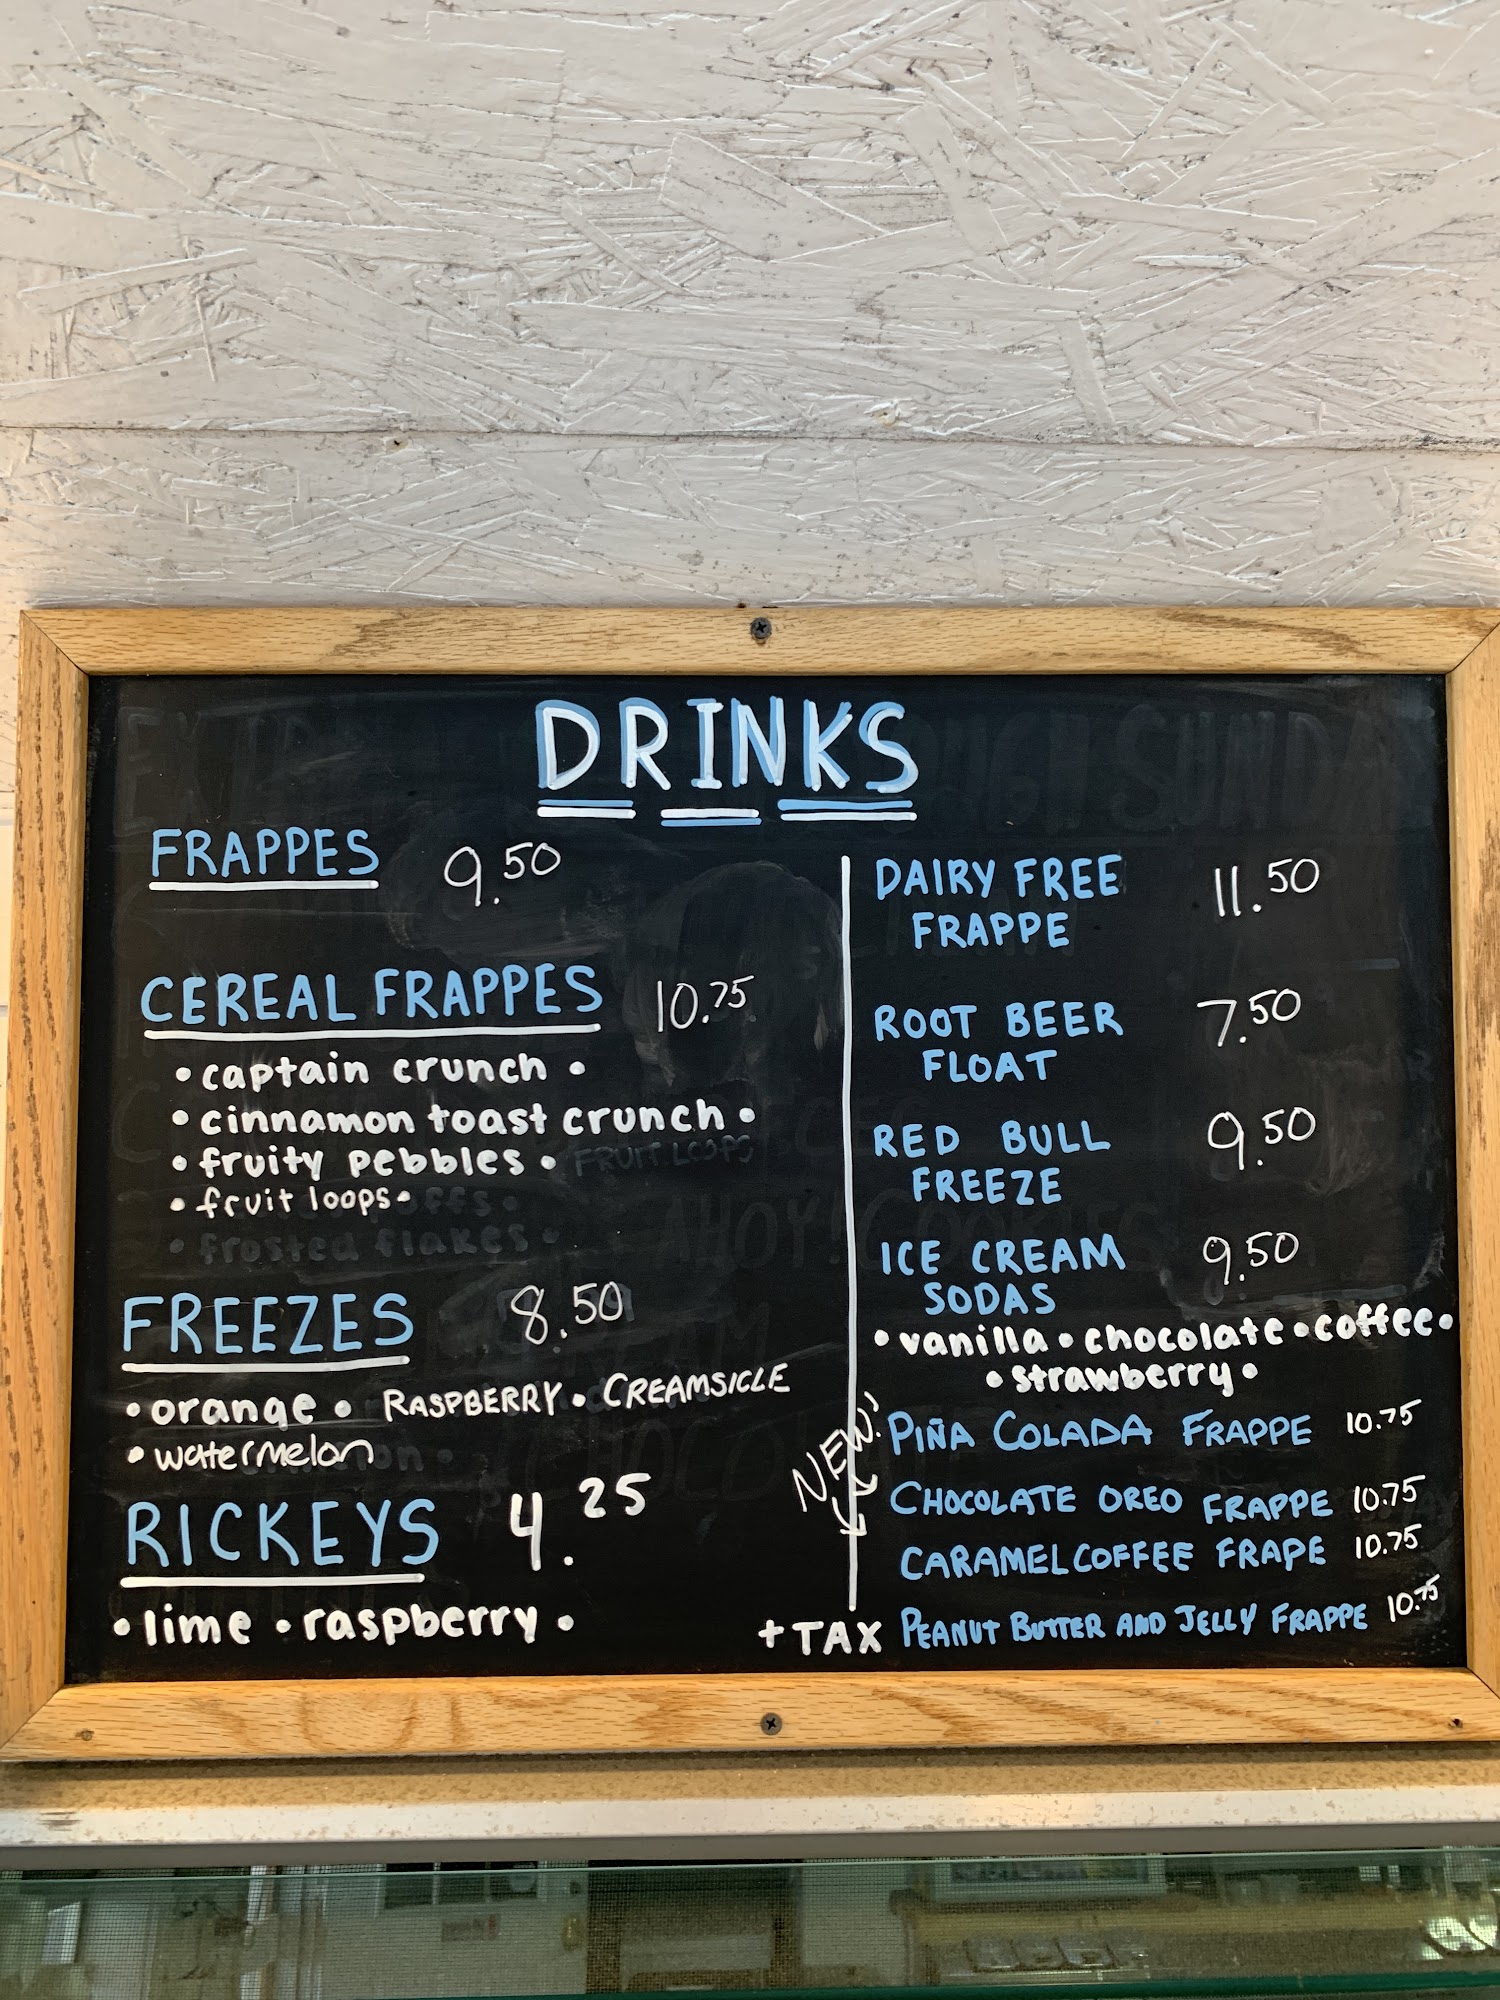 DRINKS
FRAPPES 9.50
CEREAL FRAPPES 10.75
• captain crunch •
• cinnamon toast crunch •
• fruity pebbles •
• fruit loops •
FREEZES 8.50
• orange • RASPBERRY • CREAMSICLE
• watermelon
RICKEYS 4.25
• lime • raspberry •
DAIRY FREE 11.50
FRAPPE
ROOT BEER 7.50
FLOAT
RED BULL 9.50
FREEZE
ICE CREAM 9.50
SODAS
• vanilla • chocolate • coffee •
• strawberry •
NEW!
PIÑA COLADA FRAPPE 10.75
CHOCOLATE OREO FRAPPE 10.75
CARAMEL COFFEE FRAPE 10.75
PEANUT BUTTER AND JELLY FRAPPE 10.75
+ TAX